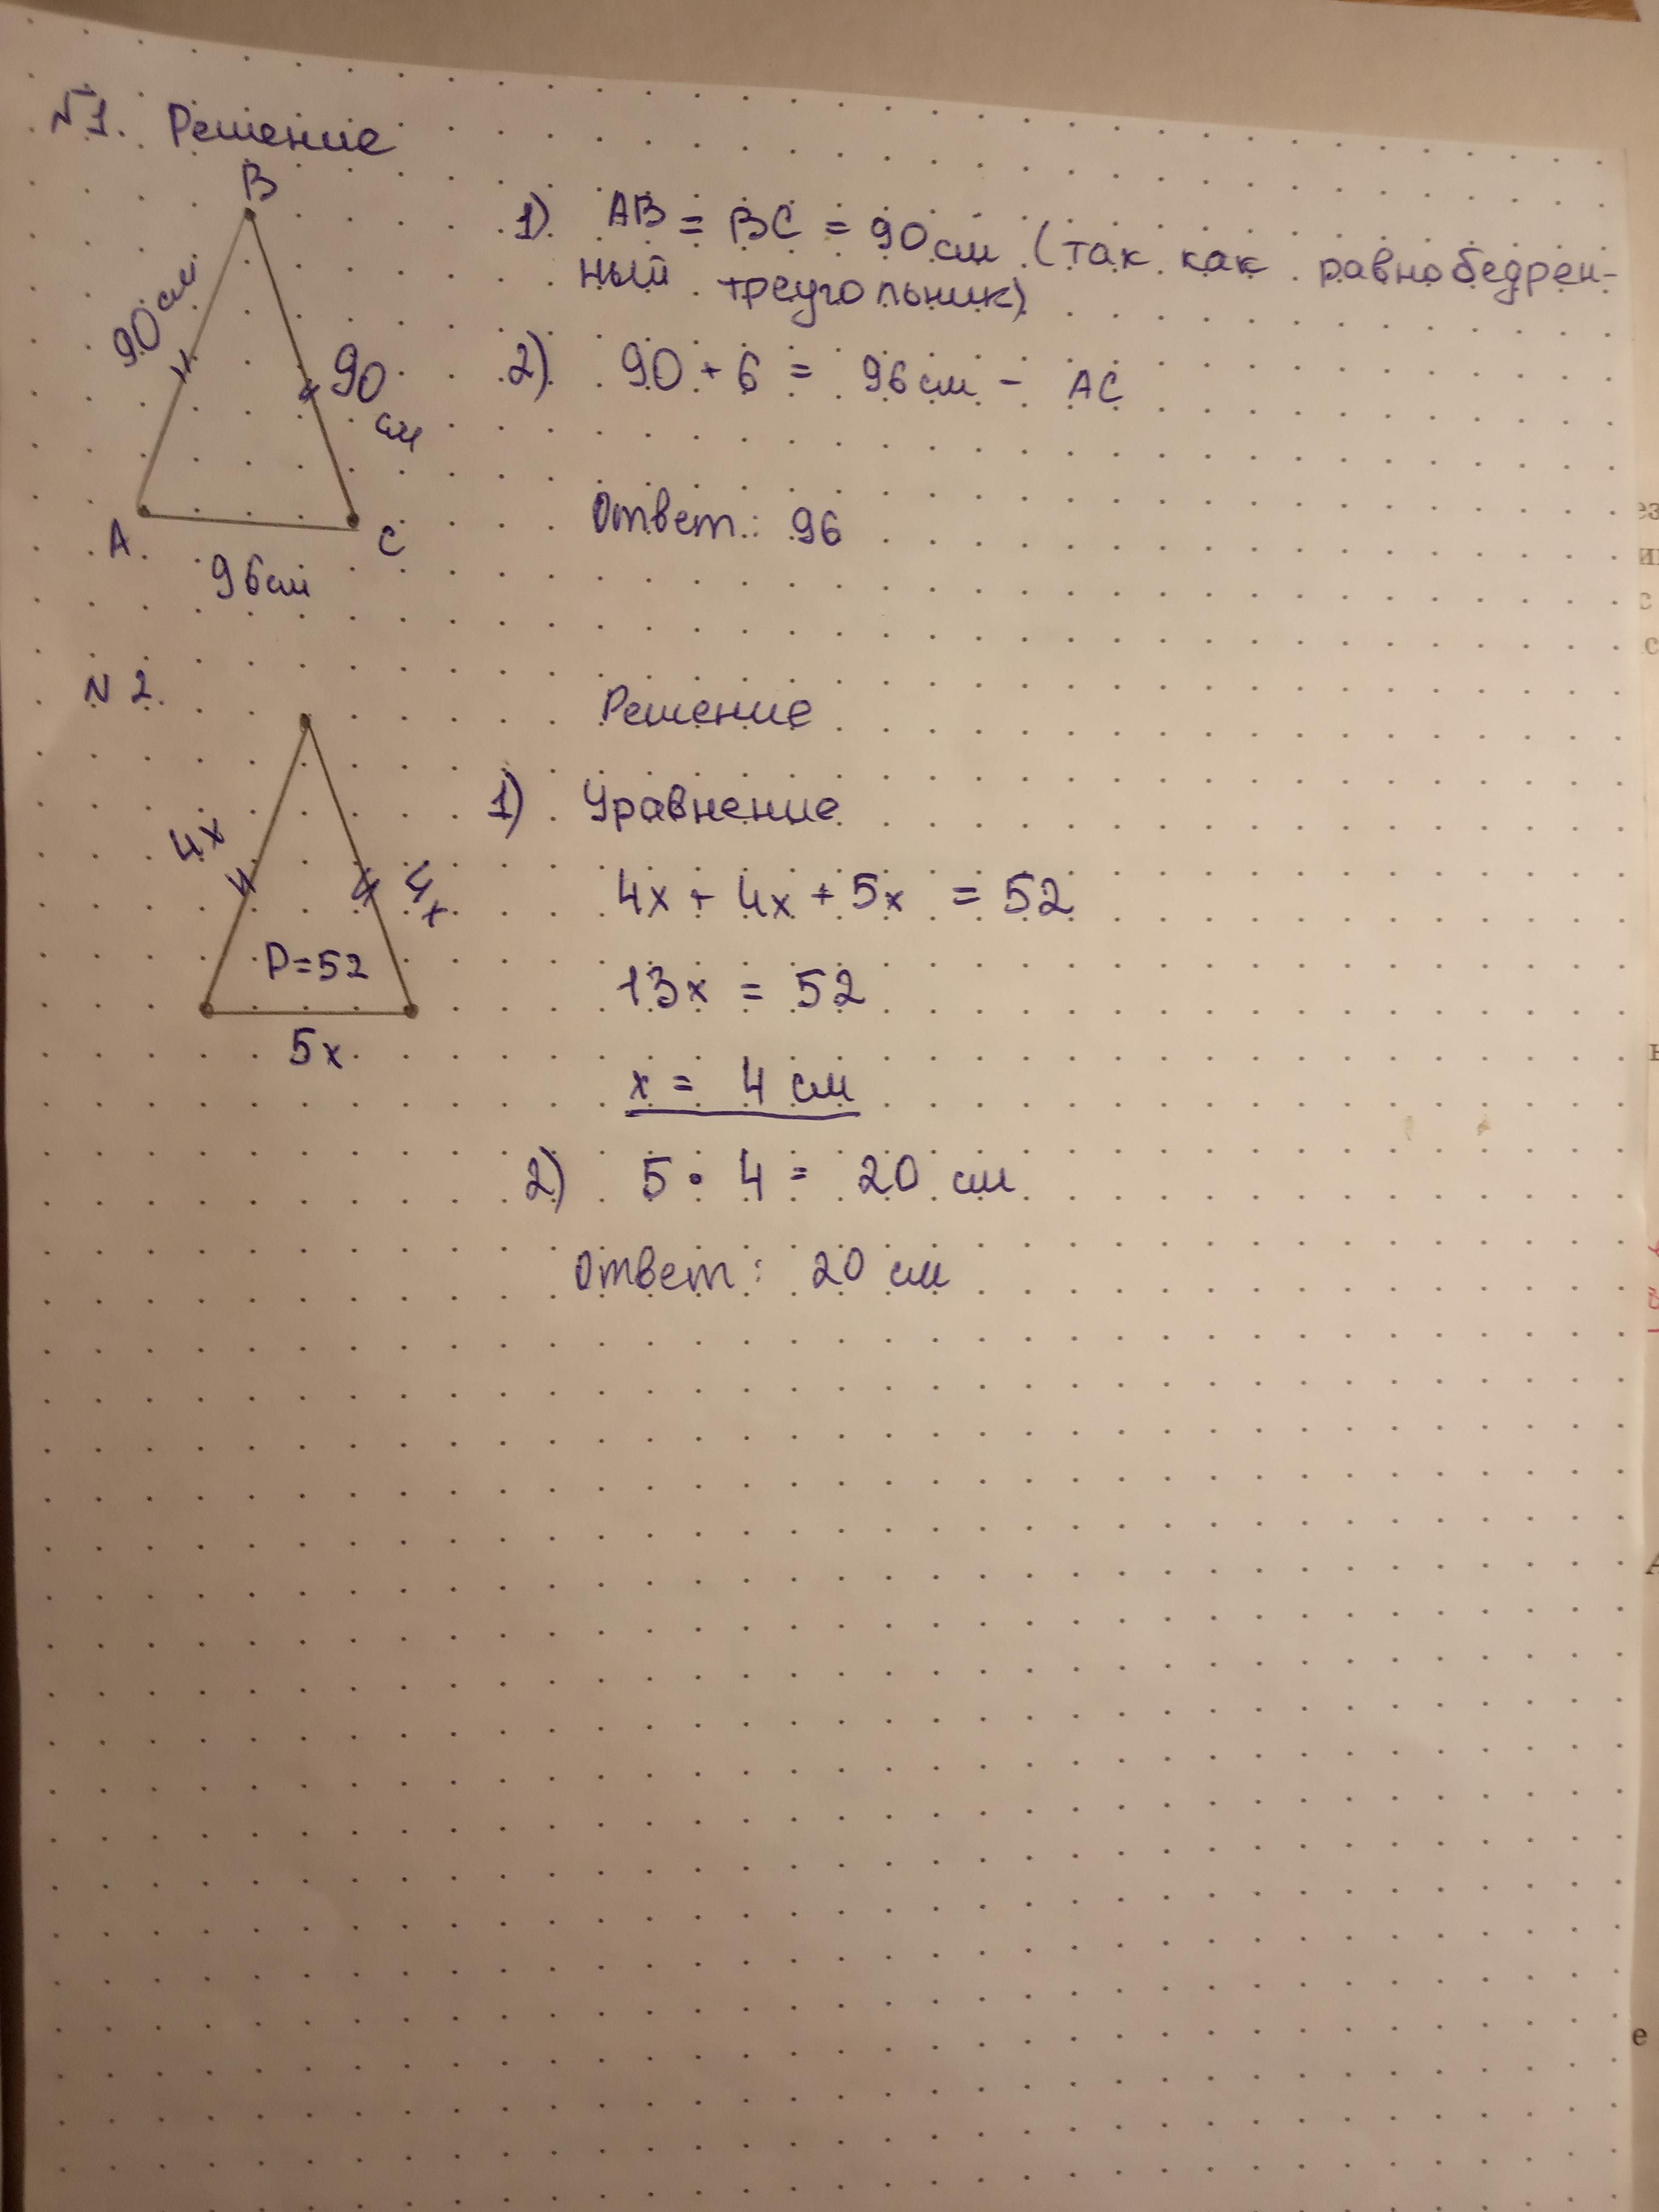 №1. Решение
B
90 см
90
см
A
C
96 см
1) AB = BC = 90 см (так как равнобедрен-
ный треугольник)
2) 90 + 6 = 96 см - AC
Ответ: 96
N 2.
Решение
4x
4x
P=52
5x
1) Уравнение
4x + 4x + 5x = 52
13x = 52
x = 4 см
2) 5 · 4 = 20 см
Ответ: 20 см